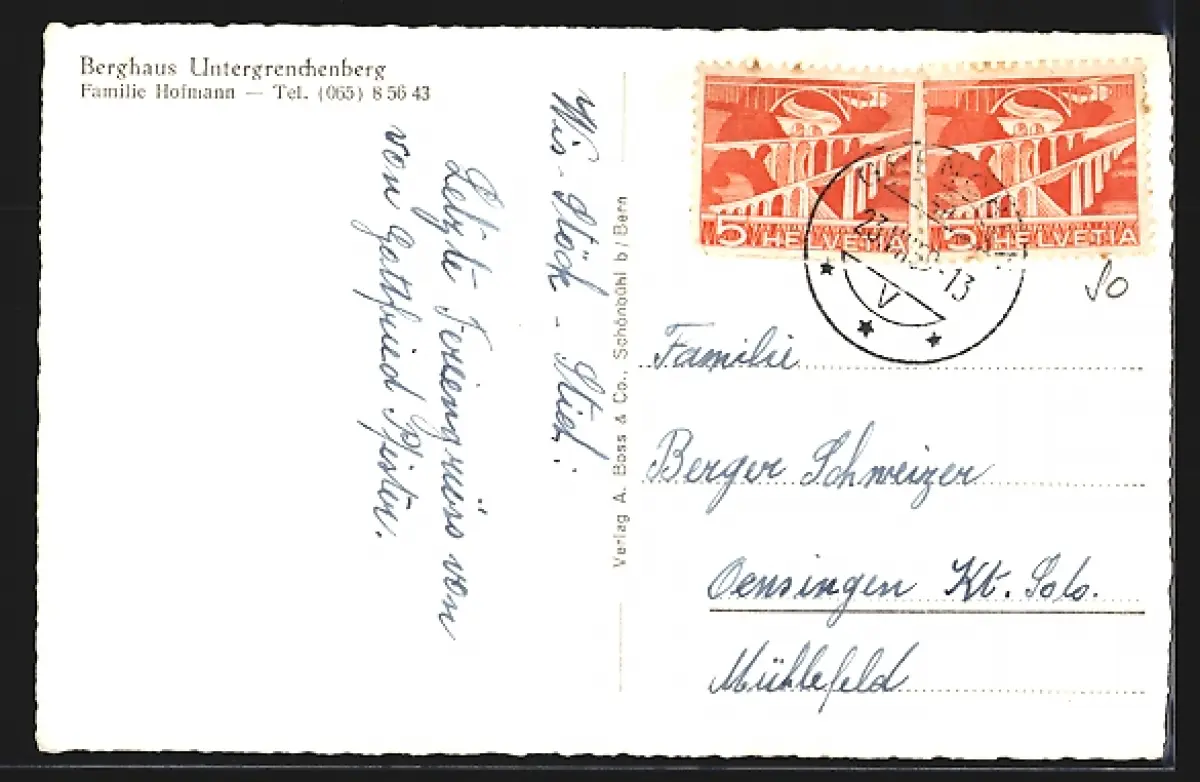 Berghaus Untergrenchenberg
Familie Hofmann — Tel. (065) 8 56 43
Wis - Stöck - Stich!
Letzte Feriengrüss von
von Gottfried Pfister.
Verlag A. Boss & Co., Schönbühl b / Bern
5 HELVETIA
5 HELVETIA
-13
V
50
Familie
Berger Schweizer
Oensingen Kt. Solo.
Mühlefeld